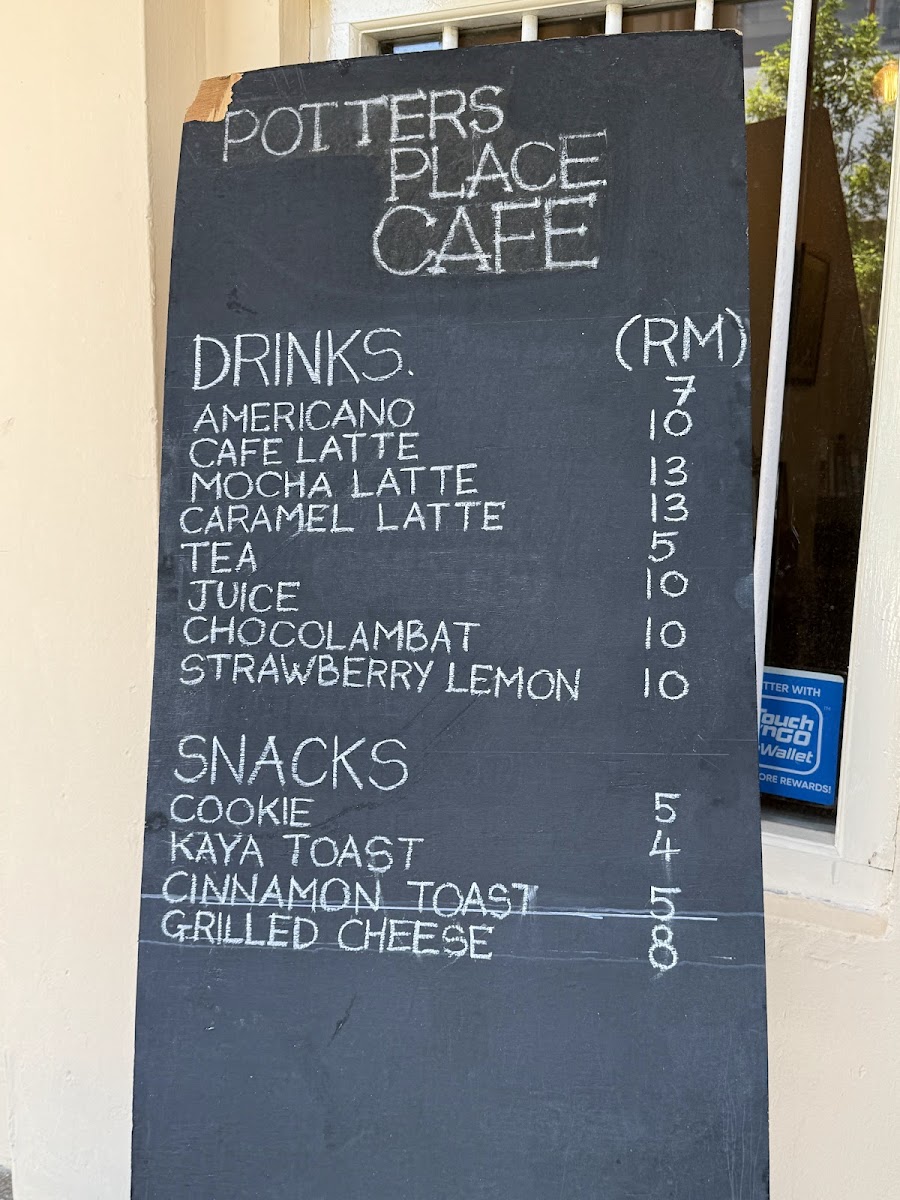 POTTERS
PLACE
CAFE
DRINKS. (RM)
AMERICANO 7
CAFE LATTE 10
MOCHA LATTE 13
CARAMEL LATTE 13
TEA 5
JUICE 10
CHOCOLAMBAT 10
STRAWBERRY LEMON 10
SNACKS
COOKIE 5
KAYA TOAST 4
CINNAMON TOAST 5
GRILLED CHEESE 8
TTER WITH
Touch
'nGO
eWallet
ORE REWARDS!